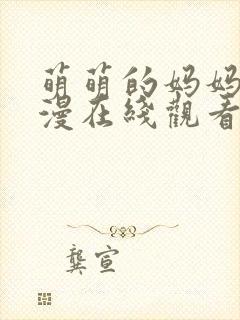 萌萌的妈妈
漫在线觀看
龚宣